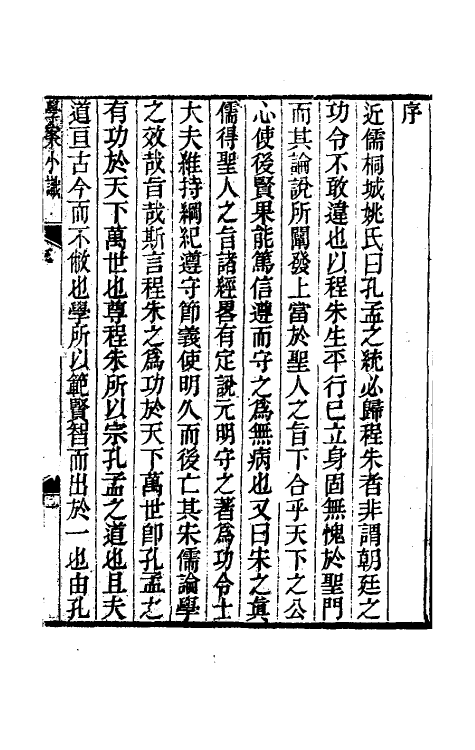 序
近儒桐城姚氏曰孔孟之統必歸程朱者非謂朝廷之
功令不敢違也以程朱生平行己立身固無愧於聖門
而其論說所闡發上當於聖人之旨下合乎天下之公
心使後賢果能篤信遵而守之爲無病也又曰宋之眞
儒得聖人之旨諸經畧有定說元明守之著爲功令士
大夫維持綱紀遵守節義使明久而後亡其宋儒論學
之效哉旨哉斯言程朱之爲功於天下萬世卽孔孟之
有功於天下萬世也尊程朱所以宗孔孟之道也且夫
道亘古今而不敝也學所以範賢智而出於一也由孔
學案小識
序